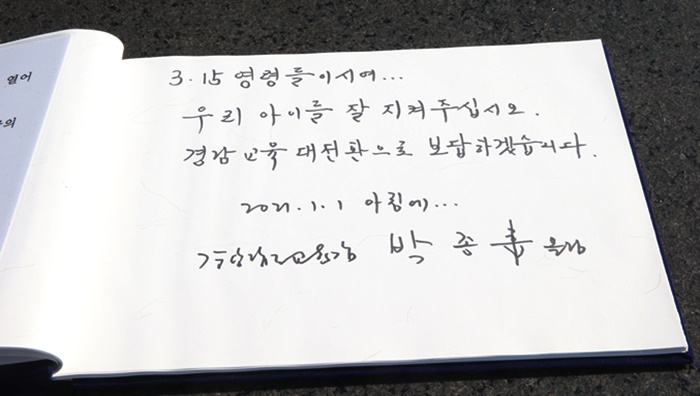 열어
의
3·15 영령들이시여...
우리 아이들을 잘 지켜주십시오.
경남교육 대전환으로 보답하겠습니다.
2021.1.1 아침에...
경상남도교육감 박종훈 올림